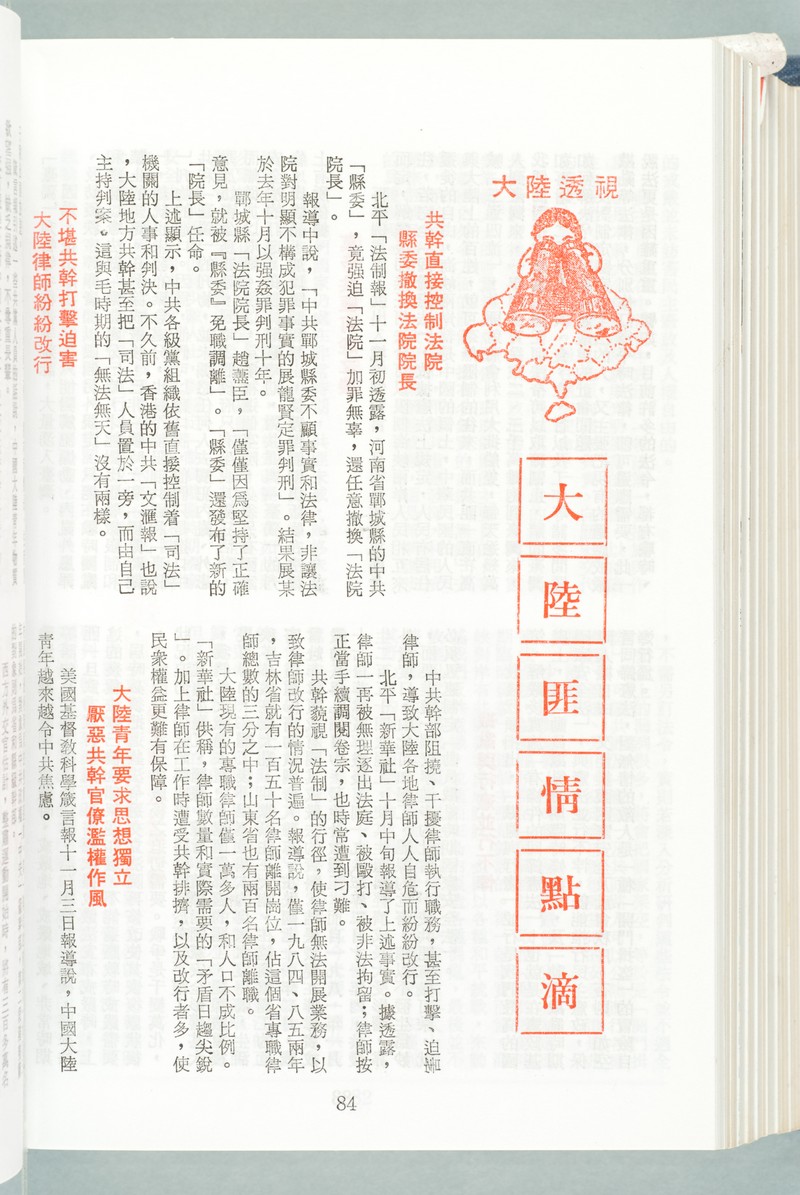 大陸透視
大陸匪情點滴
共幹直接控制法院
縣委撤換法院院長
北平「法制報」十一月初透露,河南省鄲城縣的中共
「縣委」,竟强迫「法院」加罪無辜,還任意撤換「法院
院長」。
報導中說,「中共鄲城縣委不顧事實和法律,非讓法
院對明顯不構成犯罪事實的展龍賢定罪判刑」。結果展某
於去年十月以强姦罪判刑十年。
鄲城縣「法院院長」趙蓋臣,「僅僅因爲堅持了正確
意見,就被『縣委』免職調離」。「縣委」還發布了新的
「院長」任命。
上述顯示,中共各級黨組織依舊直接控制着「司法」
機關的人事和判決。不久前,香港的中共「文滙報」也說
,大陸地方共幹甚至把「司法」人員置於一旁,而由自己
主持判案。這與毛時期的「無法無天」沒有兩樣。
不堪共幹打擊迫害
大陸律師紛紛改行
中共幹部阻撓、干擾律師執行職務,甚至打擊、迫害
律師,導致大陸各地律師人人自危而紛紛改行。
北平「新華社」十月中旬報導了上述事實。據透露,
律師一再被無理逐出法庭、被毆打、被非法拘留;律師按
正當手續調閱卷宗,也時常遭到刁難。
共幹藐視「法制」的行徑,使律師無法開展業務,以
致律師改行的情況普遍。報導說,僅一九八四、八五兩年
,吉林省就有一百五十名律師離開崗位,佔這個省專職律
師總數的三分之中;山東省也有兩百名律師離職。
大陸現有的專職律師僅一萬多人,和人口不成比例。
「新華社」供稱,律師數量和實際需要的「矛盾日趨尖銳
」。加上律師在工作時遭受共幹排擠,以及改行者多,使
民衆權益更難有保障。
大陸青年要求思想獨立
厭惡共幹官僚濫權作風
美國基督敎科學箴言報十一月三日報導說,中國大陸
靑年越來越令中共焦慮。
84